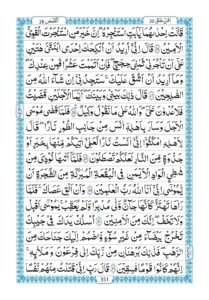 القصص ٢٨
امن خلق ٢٠
قَالَتْ اِحْدٰىهُمَا يٰۤاَبَتِ اسْتَاْجِرْهُ اِنَّ خَيْرَ مَنِ اسْتَاْجَرْتَ الْقَوِيُّ
الْاَمِيْنُ قَالَ اِنِّيْۤ اُرِيْدُ اَنْ اُنْكِحَكَ اِحْدَى ابْنَتَيَّ هٰتَيْنِ
عَلٰۤى اَنْ تَاْجُرَنِيْ ثَمٰنِيَ حِجَجٍ فَاِنْ اَتْمَمْتَ عَشْرًا فَمِنْ عِنْدِكَ
وَمَاۤ اُرِيْدُ اَنْ اَشُقَّ عَلَيْكَ سَتَجِدُنِيْۤ اِنْ شَآءَ اللّٰهُ مِنَ
الصّٰلِحِيْنَ قَالَ ذٰلِكَ بَيْنِيْ وَبَيْنَكَ اَيَّمَا الْاَجَلَيْنِ قَضَيْتُ
فَلَا عُدْوَانَ عَلَيَّ وَاللّٰهُ عَلٰى مَا نَقُوْلُ وَكِيْلٌ فَلَمَّا قَضٰى مُوْسَى
الْاَجَلَ وَسَارَ بِاَهْلِهٖۤ اٰنَسَ مِنْ جَانِبِ الطُّوْرِ نَارًا قَالَ
لِاَهْلِهِ امْكُثُوْۤا اِنِّيْۤ اٰنَسْتُ نَارًا لَّعَلِّيْۤ اٰتِيْكُمْ مِّنْهَا بِخَبَرٍ اَوْ
جَذْوَةٍ مِّنَ النَّارِ لَعَلَّكُمْ تَصْطَلُوْنَ فَلَمَّاۤ اَتٰىهَا نُوْدِيَ مِنْ
شَاطِئِ الْوَادِ الْاَيْمَنِ فِي الْبُقْعَةِ الْمُبٰرَكَةِ مِنَ الشَّجَرَةِ اَنْ
يّٰمُوْسٰۤى اِنِّيْۤ اَنَا اللّٰهُ رَبُّ الْعٰلَمِيْنَ وَاَنْ اَلْقِ عَصَاكَ فَلَمَّا
رَاٰهَا تَهْتَزُّ كَاَنَّهَا جَآنٌّ وَّلّٰى مُدْبِرًا وَّلَمْ يُعَقِّبْ يٰمُوْسٰۤى اَقْبِلْ
وَلَا تَخَفْ اِنَّكَ مِنَ الْاٰمِنِيْنَ اُسْلُكْ يَدَكَ فِيْ جَيْبِكَ
تَخْرُجْ بَيْضَآءَ مِنْ غَيْرِ سُوْٓءٍ وَّاضْمُمْ اِلَيْكَ جَنَاحَكَ مِنَ
الرَّهْبِ فَذٰنِكَ بُرْهَانٰنِ مِنْ رَّبِّكَ اِلٰى فِرْعَوْنَ وَمَلَا۟ئِهٖ
اِنَّهُمْ كَانُوْا قَوْمًا فٰسِقِيْنَ قَالَ رَبِّ اِنِّيْ قَتَلْتُ مِنْهُمْ نَفْسًا
351